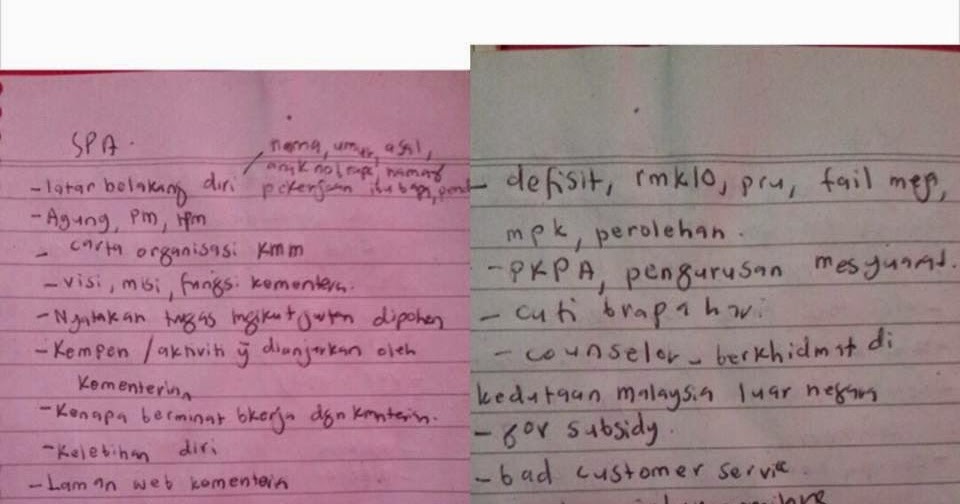 SPA.
nama, umur, asal,
anak no brape, nama
- latar belakang diri pekerjaan ibu bapa,
- Agung, PM, TPM
- carta organisasi KMM
- visi, misi, fungsi kementerin.
- Nyatakan tugas mgkut jwtn dipohon
- Kempen / aktiviti ÿ dianjurkan oleh
Kementerin
- Kenapa berminat bkerja dgn kmnterin.
- Kelebihan diri
- Laman web kementerin
- defisit, rmk10, pru, fail meja,
mpk, perolehan.
- PKPA, pengurusan mesyuarat.
- cuti brapa hari
- counselor - berkhidmat di
kedutaan malaysia luar negara
- gov subsidy.
- bad customer service